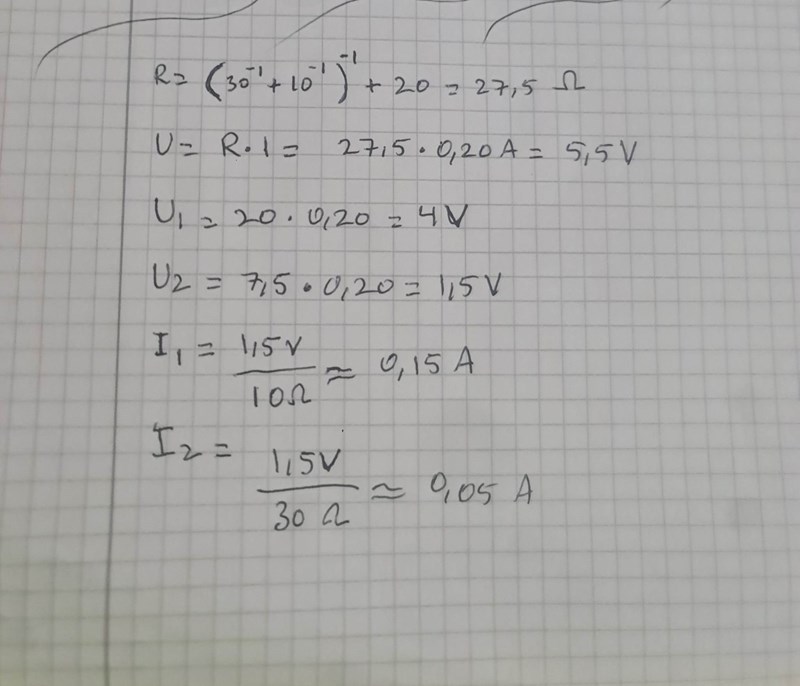 R= (30⁻¹+10⁻¹)⁻¹ + 20 = 27,5 Ω
U= R·I = 27,5·0,20A = 5,5V
U₁ = 20·0,20 = 4V
U₂ = 7,5·0,20 = 1,5V
I₁ = 1,5V / 10Ω ≈ 0,15 A
I₂ = 1,5V / 30Ω ≈ 0,05 A